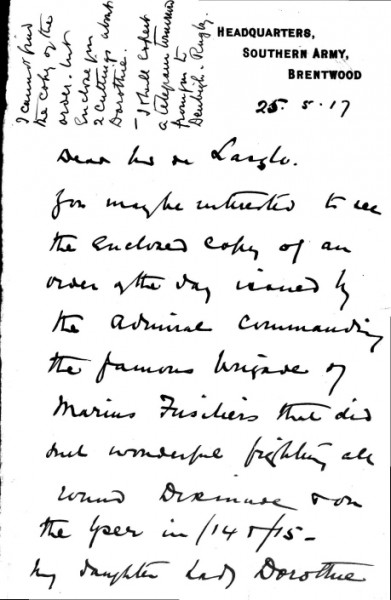 HEADQUARTERS,
SOUTHERN ARMY,
BRENTWOOD
25. 5. 17
I cannot find
the copy of the
order. but
Enclose you
2 Cuttings about
Dorothie.
— I shall expect
a telegram
from you to
Denbigh. Rugby
Dear Mr de Laszlo.
You may be interested to see
the Enclosed copy of an
order of the day issued by
the Admiral Commanding
the famous brigade of
Marins Fusiliers that did
such wonderful fighting all
round Dixmude & on
the Yser in /14 & /15—
My daughter Lady Dorothie